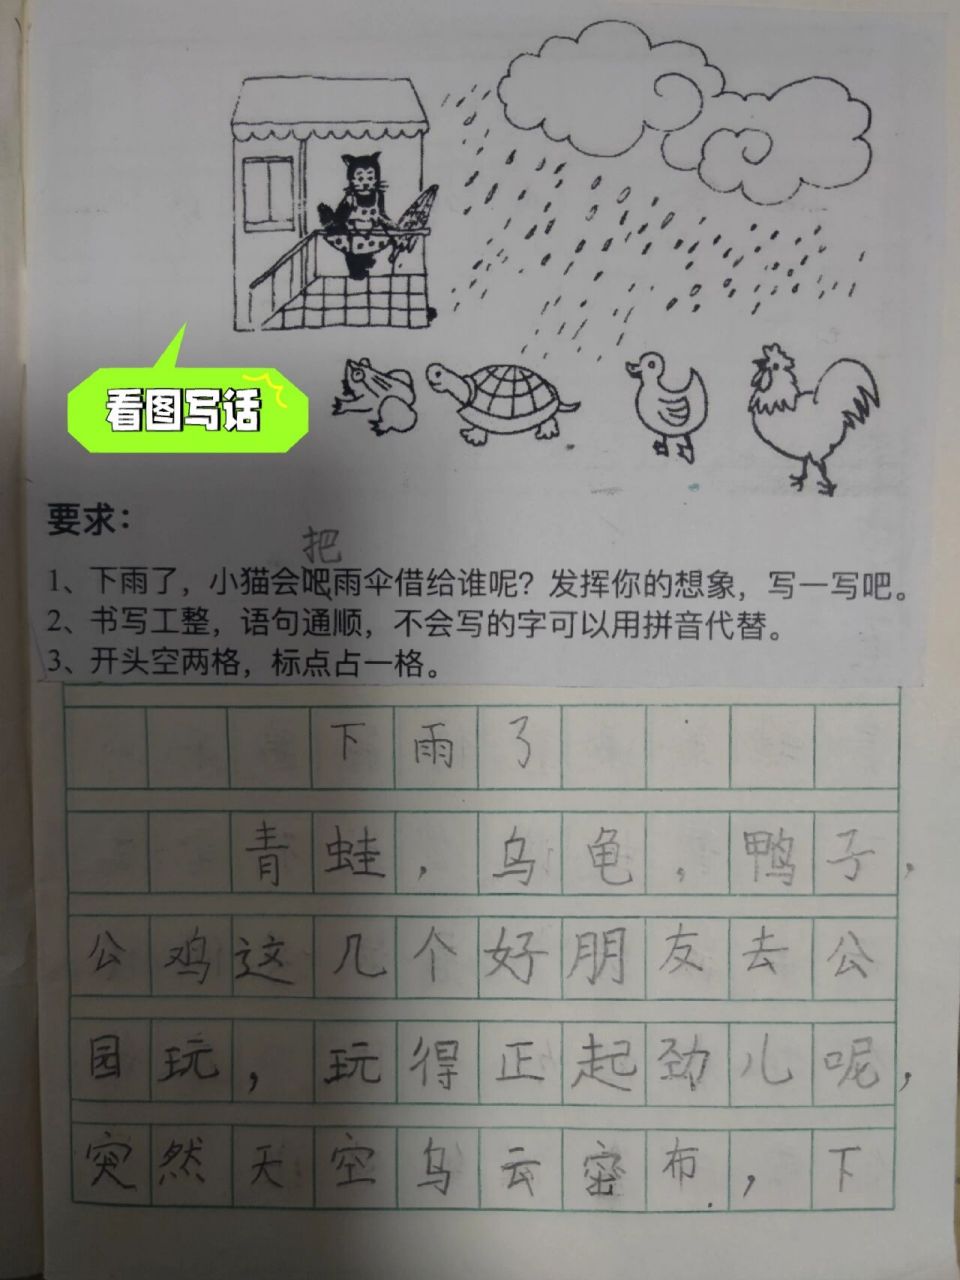 看图写话
要求：
把
1、下雨了，小猫会吧雨伞借给谁呢？发挥你的想象，写一写吧。
2、书写工整，语句通顺，不会写的字可以用拼音代替。
3、开头空两格，标点占一格。
下雨了
青蛙，乌龟，鸭子，
公鸡这几个好朋友去公
园玩，玩得正起劲儿呢，
突然天空乌云密布，下